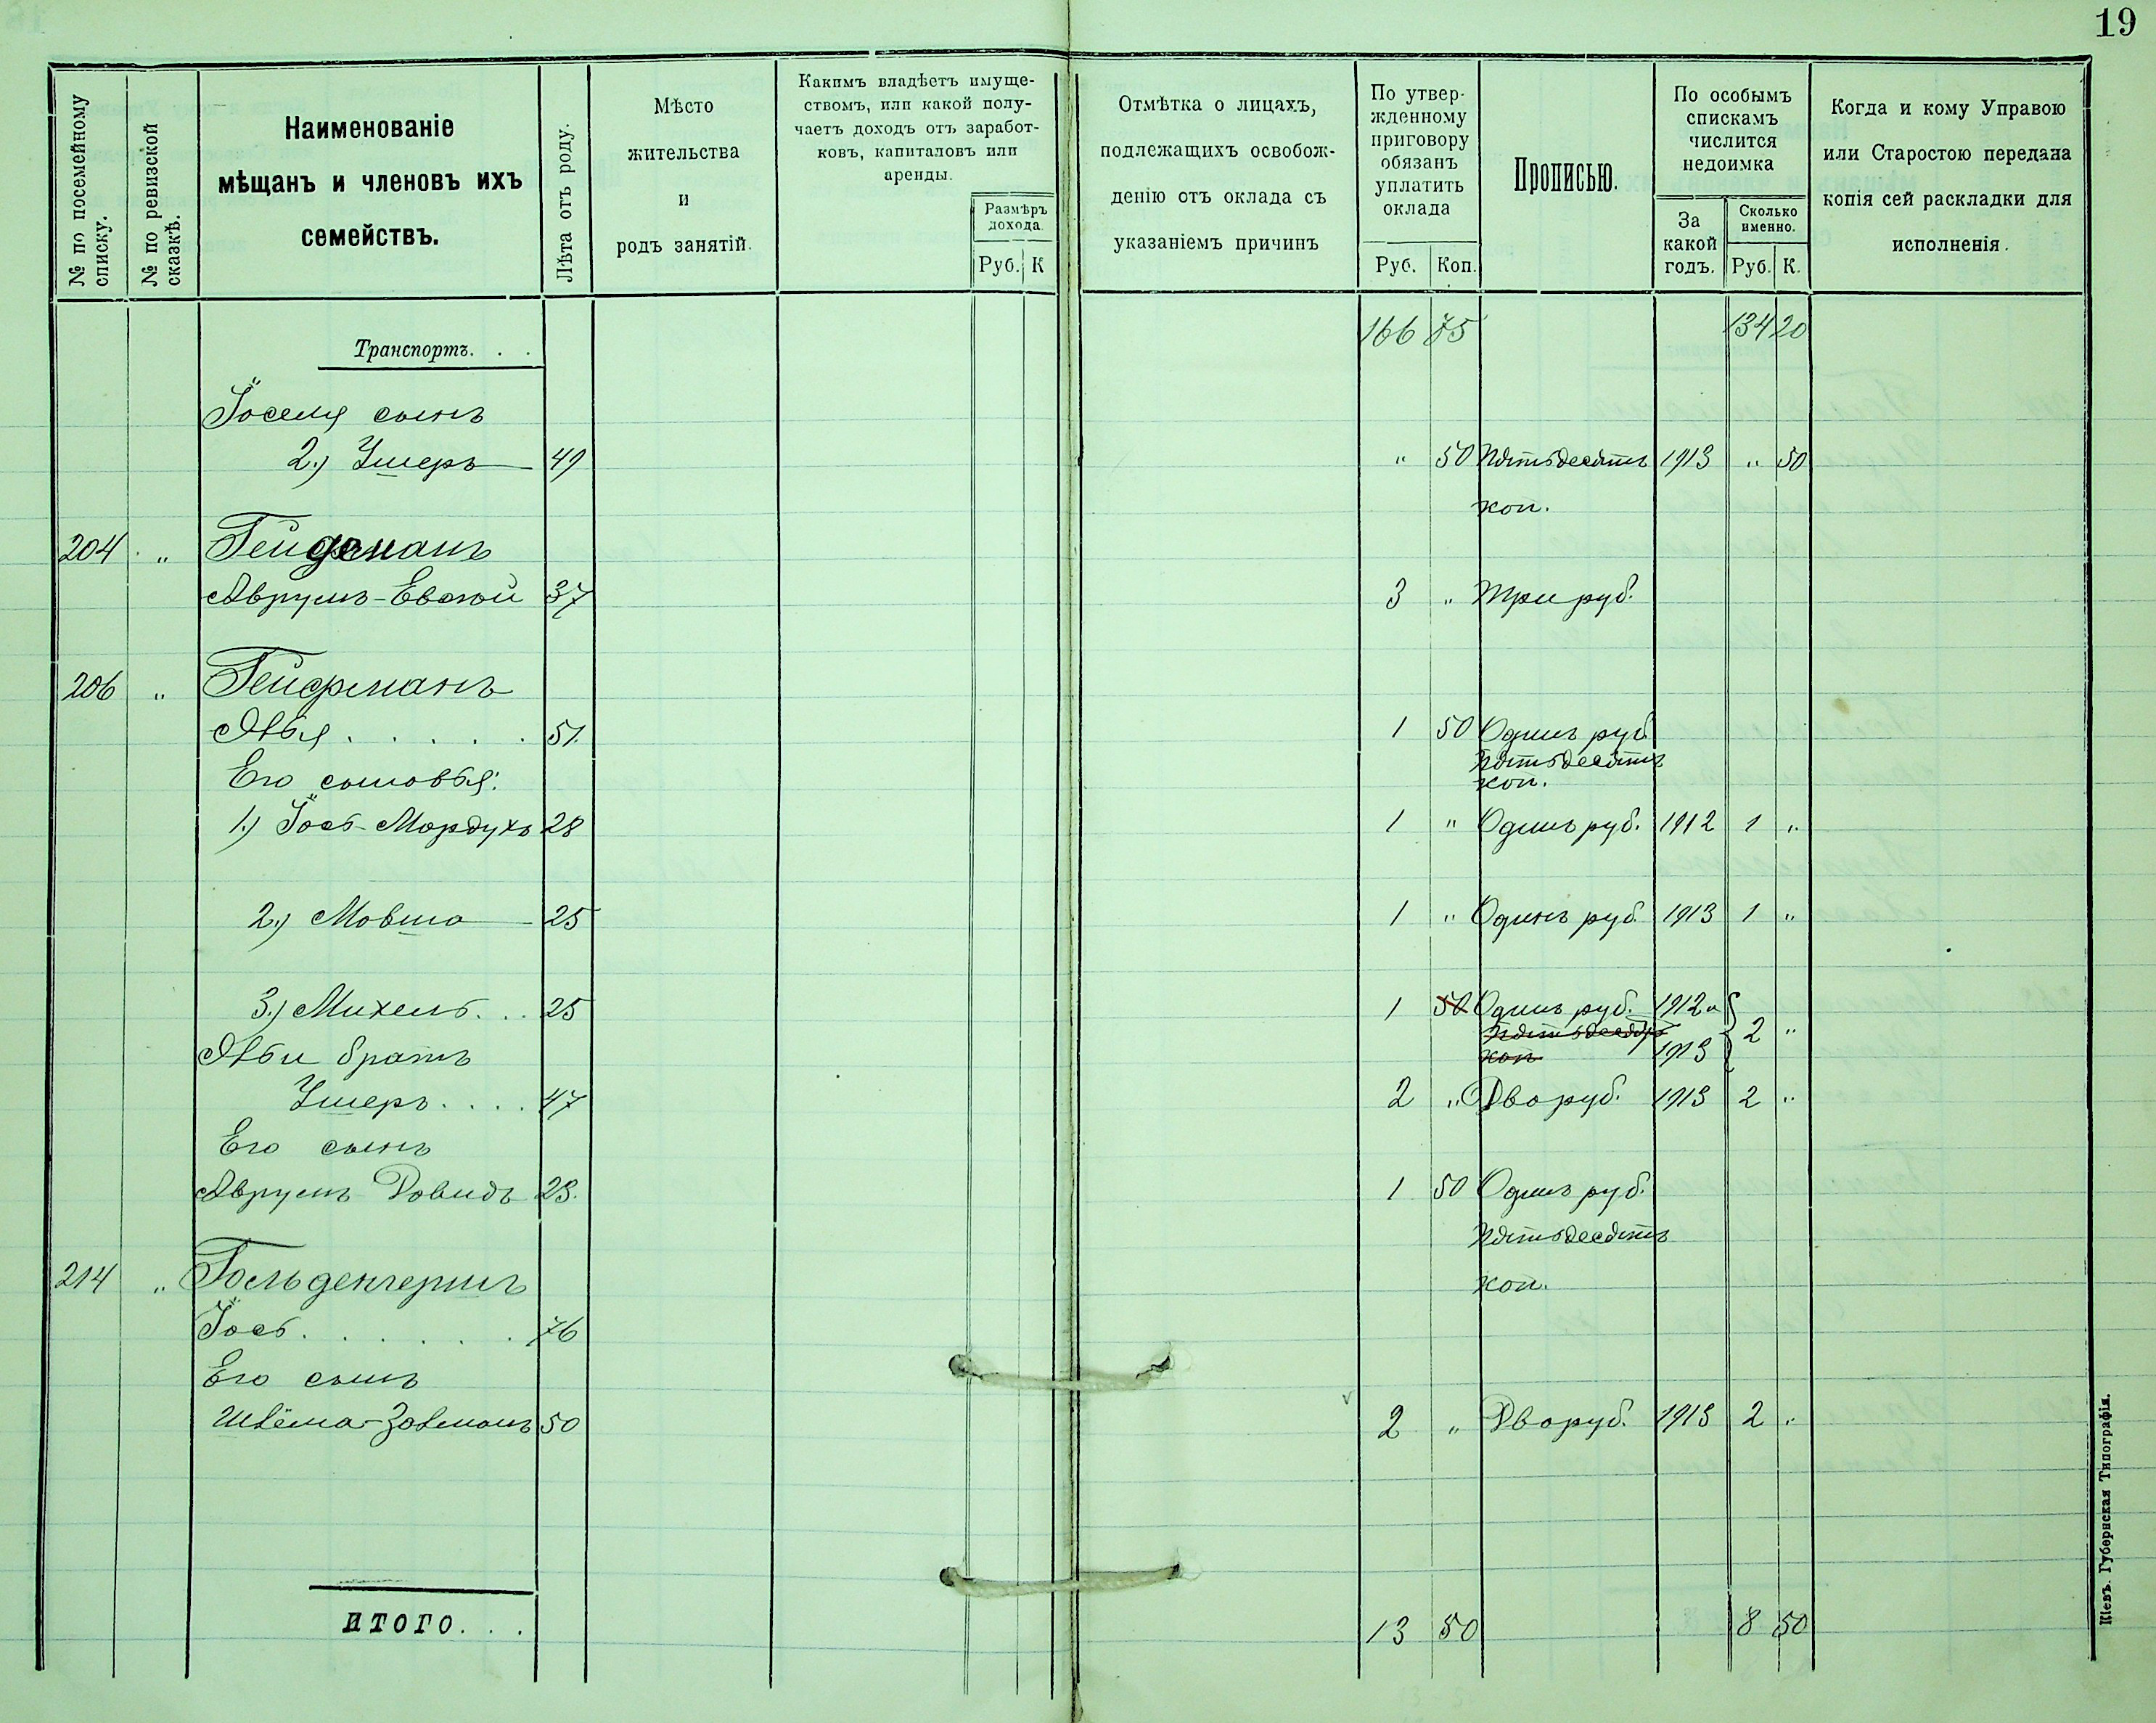 19
№ по посемейному списку.
№ по ревизской сказкѣ.
Наименованіе
мѣщанъ и членовъ ихъ
семействъ.
Лѣта отъ роду.
Мѣсто
жительства
и
родъ занятій.
Какимъ владѣетъ имуще-
ствомъ, или какой полу-
чаетъ доходъ отъ заработ-
ковъ, капиталовъ или
аренды.
Размѣръ
дохода.
Руб. К
Отмѣтка о лицахъ,
подлежащихъ освобож-
денію отъ оклада съ
указаніемъ причинъ
По утвер-
жденному
приговору
обязанъ
уплатить
оклада
Руб. Коп.
Прописью.
По особымъ
спискамъ
числится
недоимка
За
какой
годъ.
Сколько
именно.
Руб. К.
Когда и кому Управою
или Старостою передана
копія сей раскладки для
исполненія.
Транспортъ. . . 166 75 134 20
Іоселя сынъ
2.) Умеръ 49 " 50 Пятьдесятъ 1913 " 50
коп.
204 "
Аврумъ- 37 3 " Три руб.
206 " Гейфманъ
51. 1 50 Одинъ руб.
Пятьдесятъ
Его сыновья: коп.
1.) Іосъ-Мордухъ 28 1 " Одинъ руб. 1912 1 "
2.) Мовша 25 1 " Одинъ руб. 1913 1 "
3.) Михель. . . 25 1 50 Одинъ руб. 1912 и
Пятьдесятъ 2 "
братъ коп 1913
Ушеръ. . . . 47 2 " Два руб. 1913 2 "
Его сынъ
Аврумъ Довидъ 23. 1 50 Одинъ руб.
Пятьдесятъ
214 " Гольденгершъ коп.
Іосъ. . . . . . . 76
Его сынъ
Залманъ 50 2 " Два руб. 1913 2 "
ИТОГО. . . 13 50 8 50
Кіевъ. Губернская Типографія.